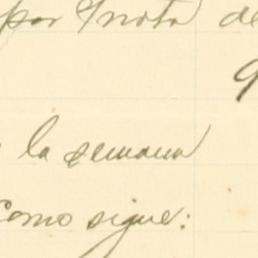 por Nota de
la semana
Como sigue: